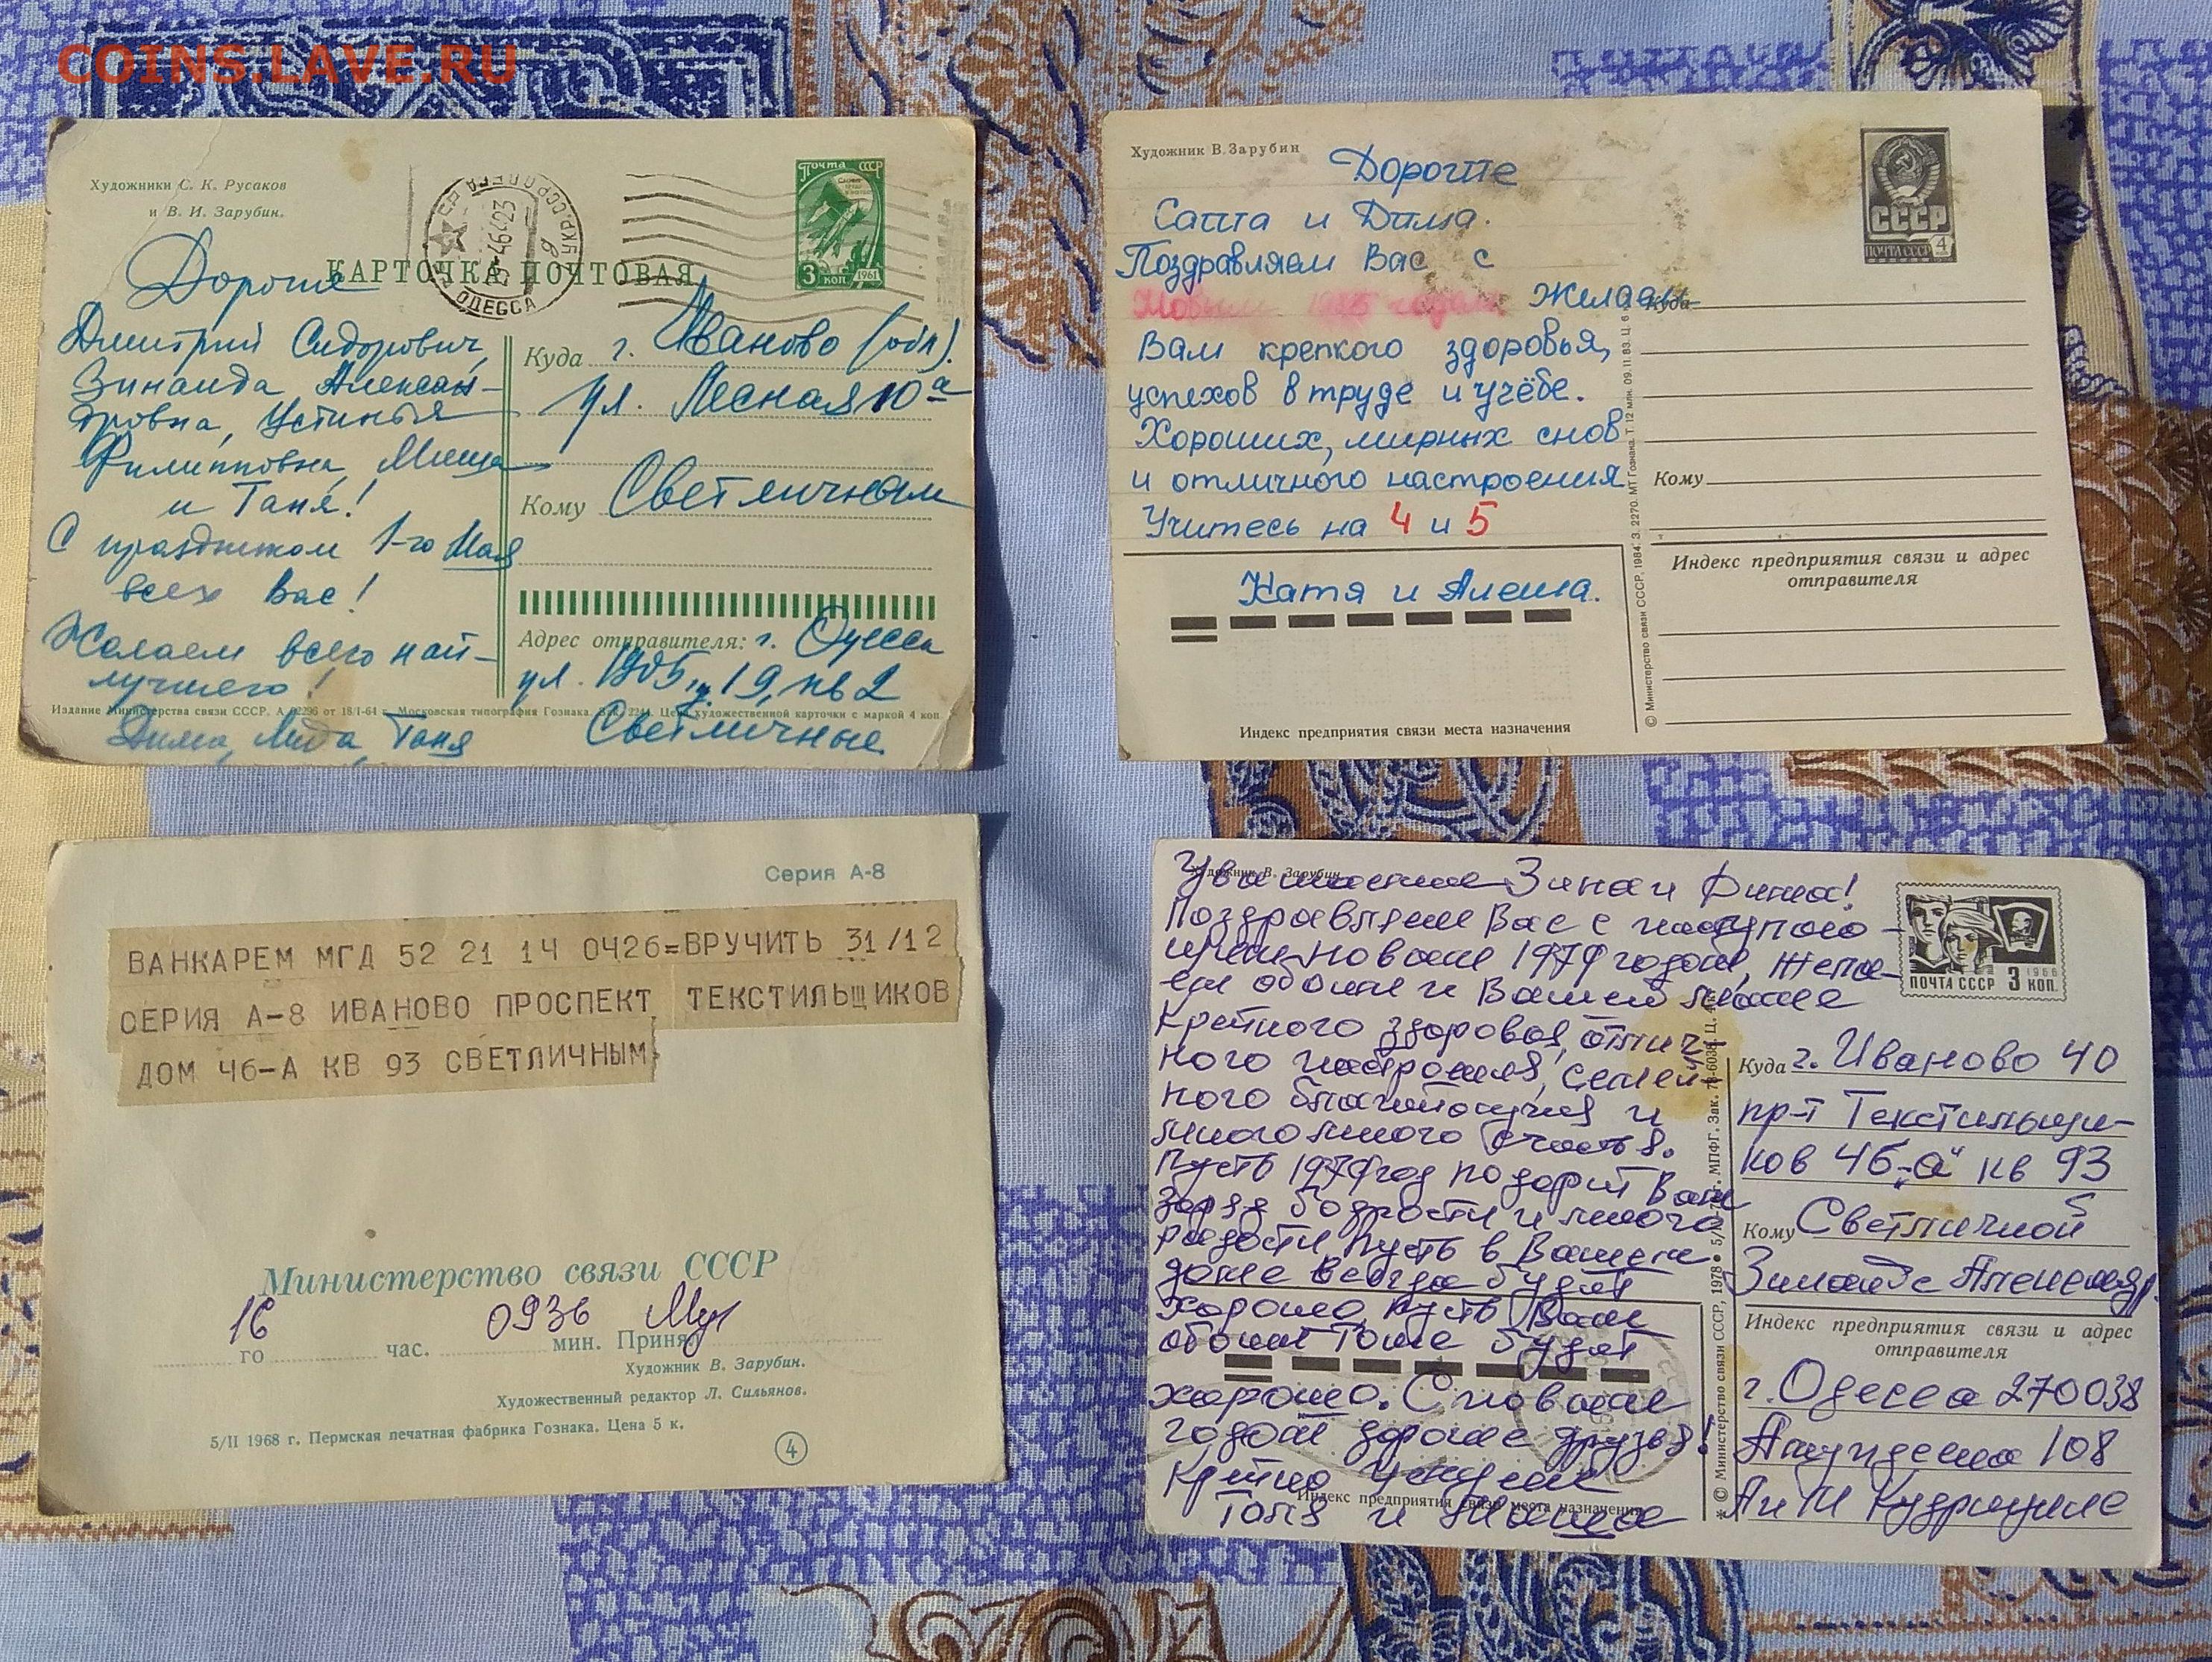 COINS.LAVE.RU
Художники С. К. Русаков
и В. И. Зарубин.
Почта СССР
3 коп
1961
ОДЕССА
КАРТОЧКА ПОЧТОВАЯ
Дорогие
Дмитрий Сидорович,
Зинаида Алексан-
дровна, Устинья
Филипповна, Миша
и Таня!
С праздником 1-го Мая
всех Вас!
Желаем всего наи-
лучшего!
Дима, Лида, Таня
Куда г. Иваново (обл).
ул. Лесная 10а
Кому Светличным
Адрес отправителя: г. Одесса
ул. 1905, 19, кв 2
Светличные
Издание Министерства связи СССР. от 18/I-64 г. Московская типография Гознака. Цена художественной карточки с маркой 4 коп
Художник В. Зарубин
СССР
ПОЧТА СССР 4
Дорогие
Саша и Дима.
Поздравляем Вас с
Новым годом Желаем
Вам крепкого здоровья,
успехов в труде и учёбе.
Хороших, мирных снов
и отличного настроения
Учитесь на 4 и 5
Катя и Алеша.
Индекс предприятия связи места назначения
© Министерство связи СССР, 1984. З. 2270. МТ Гознака. Т. 12 млн. 09.11.83. Ц. 6
Куда
Кому
Индекс предприятия связи и адрес
отправителя
Серия А-8
ВАНКАРЕМ МГД 52 21 14 0426=ВРУЧИТЬ 31/12
СЕРИЯ А-8 ИВАНОВО ПРОСПЕКТ ТЕКСТИЛЬЩИКОВ
ДОМ 46-А КВ 93 СВЕТЛИЧНЫМ
Министерство связи СССР
16 0936
го час. мин. Принял
Художник В. Зарубин.
Художественный редактор Л. Сильянов.
5/II 1968 г. Пермская печатная фабрика Гознака. Цена 5 к.
4
Художник В. Зарубин
Уважаемые Зина и Дима!
Поздравляем Вас с наступаю-
щим новым 1979 годом, Жела-
ем обоим и Вашей маме
крепкого здоровья, отлич
ного настроения, семей
ного благополучия и
много много счастья.
Пусть 1979 год подарит Вам
заряд бодрости и много
радости, пусть в Вашем
доме всегда будет
хорошо, пусть Вам
обоим тоже будет
хорошо. С новым
годом дорогие друзья!
Крепко целуем
Толя и Маша
Индекс предприятия связи места назначения
* © Министерство связи СССР, 1978
ПОЧТА СССР 3 КОП.
1966
Куда г. Иваново 40
пр-т Текстильщи-
ков 46 „а" кв 93
Кому Светличной
Зинаиде Александр.
Индекс предприятия связи и адрес
отправителя
г. Одесса 270038
108
А и М